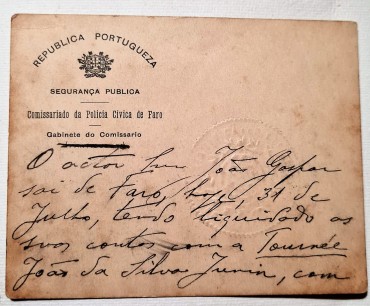 REPUBLICA PORTUGUEZA
SEGURANÇA PUBLICA
Comissariado da Policia Civica de Faro
Gabinete do Comissario
O actor Snr João Gaspar
sai de Faro, hoje, 31 de
Julho, tendo liquidado as
suas contas com a Tournée
João da Silva Junior, com